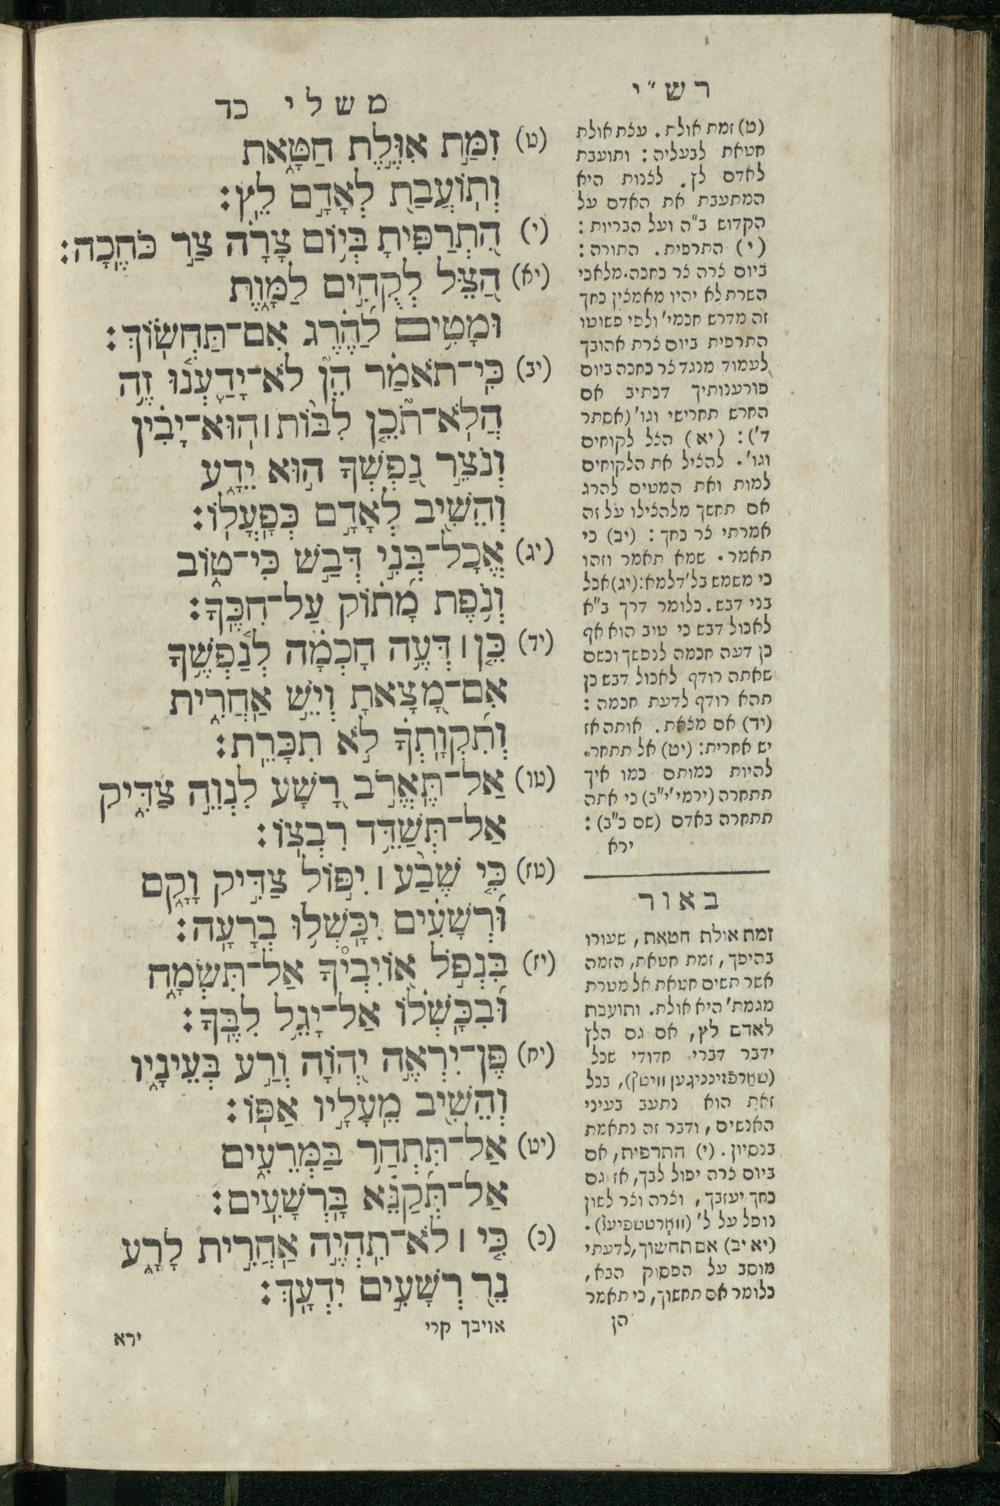 רש"י
(ט) זמת אולת. עצת אולת
חטאת לבעליה: ותועבת
לאדם לץ. לצנות היא
המתעבת את האדם על
הקדוש ב"ה ועל הבריות:
(י) התרפית. התורה:
ביום צרה צר כחכה. מלאכי
השרת לא יהיו מאמצין כחך
זה מדרש חכמי' ולפי פשוטו
התרפית ביום צרת אהובך
לעמוד מנגד צר כחכה ביום
פורענותיך דכתיב אם
החרש תחרישי וגו' (אסתר
ד'): (יא) הצל לקוחים
וגו'. להציל את הלקוחים
למות ואת המטים להרג
אם תחשך מלהצילו על זה
אמרתי צר כחך: (יב) כי
תאמר. שמא תאמר וזהו
כי משמש בל' דלמא: (יג) אכל
בני דבש. כלומר דרך ב"א
לאכול דבש כי טוב הוא אף
כן דעה חכמה לנפשך וכשם
שאתה רודף לאכול דבש כן
תהא רודף לדעת חכמה:
(יד) אם מצאת. אותה אז
יש אחרית: (יט) אל תתחר.
להיות כמותם כמו איך
תתחרה (ירמי' י"ב) כי אתה
מתחרה בארז (שם כ"ב):
ירא
באור
זמת אולת חטאת, שעורו
בהיפך, זמת חטאת, הזמה
אשר תשים חטאת אל מטרת
מגמת' היא אולת. ותועבת
לאדם לץ, אם גם הלץ
ידבר דברי חדודי שכל
בכל
זאת הוא נתעב בעיני
האנשים, ודבר זה נתאמת
בנסיון. (י) התרפית, אם
ביום צרה יפול לבך, אז גם
כחך יעזבך, וצרה וצר לשון
נופל על ל'
(יא יב) אם תחשוך, לדעתי
מוסב על הפסוק הבא,
כלומר אם תחשוך, כי תאמר
הן
משלי כד
(ט) זִמַּת אִוֶּלֶת חַטָּאת
וְתוֹעֲבַת לְאָדָם לֵץ:
(י) הִתְרַפִּיתָ בְּיוֹם צָרָה צַר כֹּחֶכָה:
(יא) הַצֵּל לְקֻחִים לַמָּוֶת
וּמָטִים לַהֶרֶג אִם־תַּחְשׂוֹךְ:
(יב) כִּי־תֹאמַר הֵן לֹא־יָדַעְנוּ זֶה
הֲלֹא־תֹכֵן לִבּוֹת ׀ הוּא־יָבִין
וְנֹצֵר נַפְשְׁךָ הוּא יֵדָע
וְהֵשִׁיב לְאָדָם כְּפָעֳלוֹ:
(יג) אֱכָל־בְּנִי דְבַשׁ כִּי־טוֹב
וְנֹפֶת מָתוֹק עַל־חִכֶּךָ:
(יד) כֵּן ׀ דְּעֶה חָכְמָה לְנַפְשֶׁךָ
אִם־מָצָאתָ וְיֵשׁ אַחֲרִית
וְתִקְוָתְךָ לֹא תִכָּרֵת:
(טו) אַל־תֶּאֱרֹב רָשָׁע לִנְוֵה צַדִּיק
אַל־תְּשַׁדֵּד רִבְצוֹ:
(טז) כִּי שֶׁבַע ׀ יִפּוֹל צַדִּיק וָקָם
וּרְשָׁעִים יִכָּשְׁלוּ בְרָעָה:
(יז) בִּנְפֹל אוֹיִבְיךָ אַל־תִּשְׂמָח
וּבִכָּשְׁלוֹ אַל־יָגֵל לִבֶּךָ:
(יח) פֶּן־יִרְאֶה יְהוָֹה וְרַע בְּעֵינָיו
וְהֵשִׁיב מֵעָלָיו אַפּוֹ:
(יט) אַל־תִּתְחַר בַּמְּרֵעִים
אַל־תְּקַנֵּא בָּרְשָׁעִים:
(כ) כִּי ׀ לֹא־תִהְיֶה אַחֲרִית לָרָע
נֵר רְשָׁעִים יִדְעָךְ:
אויבך קרי
ירא